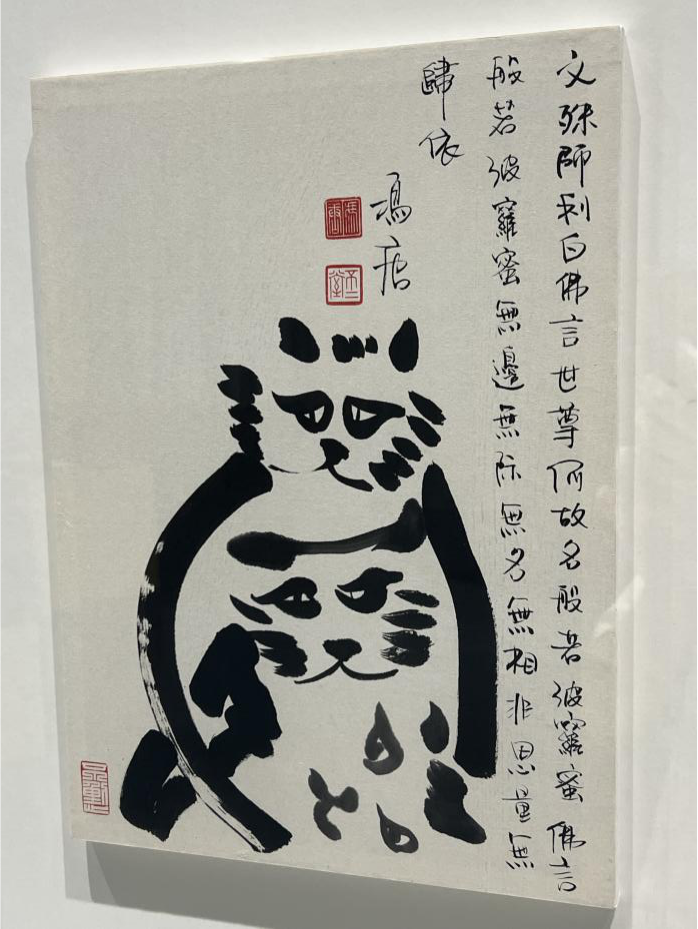 文殊師利白佛言世尊何故名般若波羅蜜佛言
般若波羅蜜無邊無際無名無相非思量無
歸依
馮唐
馮唐
不二堂